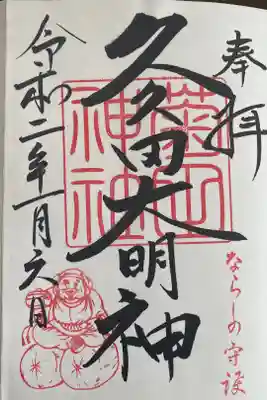 奉拝
ならしの守護
久々田大明神
菊田
神社
令和二年一月六日